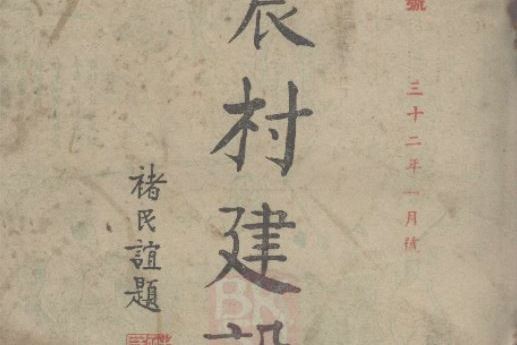 號 三十二年一月號
農村建設
褚民誼題